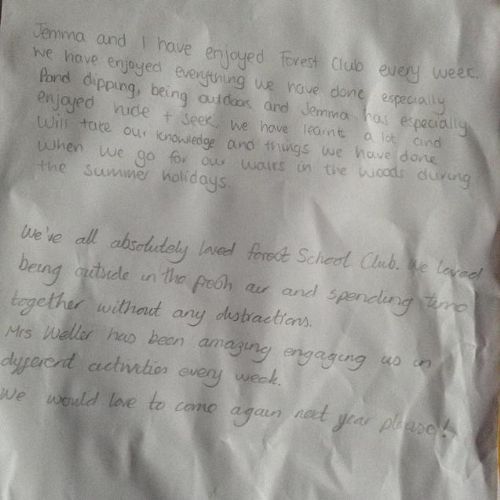 Jemma and I have enjoyed Forest Club every week.
We have enjoyed everything we have done especially
Pond dipping, being outdoors and Jemma has especially
enjoyed hide + seek. We have learnt a lot and
will take our knowledge and things we have done
when we go for our walks in the woods during
the summer holidays.
We've all absolutely loved forest School Club. We loved
being outside in the fresh air and spending time
together without any distractions.
Mrs Weller has been amazing engaging us in
different activities every week.
We would love to come again next year please!!